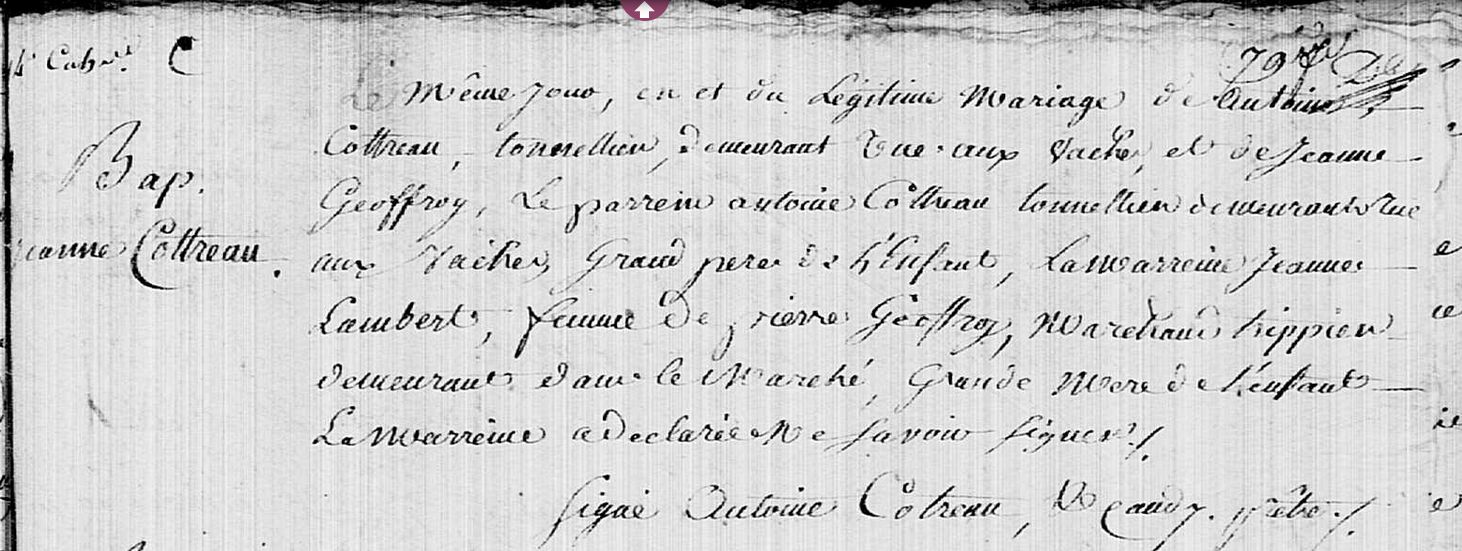 C
79
Le Même Jour, en et du Légitime Mariage de Antoine
Cottreau, tonnellier, demeurant Rue aux Vaches, et de Jeanne
Bap.
Geoffroy, Le parrein antoine Cottreau tonnellier demeurant Rue
Jeanne Cottreau.
aux Vaches, Grand pere de L'Enfant, La marreine Jeanne
Lambert, femme de pierre Geoffroy, Marchand trippier
demeurant dans le Marché, Grande Mere de L'enfant
La marreine a declarée Ne Savoir Signer /.
Signé Antoine Cotreau, prêtre /.